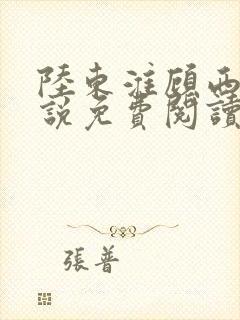 陸東淮顧西
說免費閱讀
張普